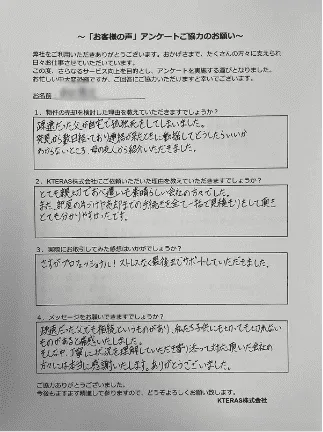 ～「お客様の声」アンケートご協力のお願い～
弊社をご利用いただきありがとうございます。おかげさまで、たくさんの方々に支えられ
日々お仕事させていただいています。
この度、さらなるサービス向上を目的とし、アンケートを実施する運びとなりました。
お忙しい中大変恐縮ですが、ご回答にご協力いただけますと幸いでございます。
お名前
1．物件の売却を検討した理由を教えていただきますでしょうか？
疎遠だった父が自宅で孤独死をしてしまいました。
突然警察から連絡が来たときに動揺してどうしたらいいか
わからないところ、母の友人から紹介いただきました。
2．KTERAS株式会社にご依頼いただいた理由を教えていただけますでしょうか？
とても親切でお心遣いも素晴らしい会社の方々でした。
また、部屋の片づけや売却までの手続きを全て一括で見積もりをして頂き
とても分かりやすかったです。
3．実際にお取引してみた感想はいかがでしょうか？
さすがプロフェッショナル！ストレスなく最後までサポートしていただきました。
4．メッセージをお願いできますでしょうか？
疎遠だった父でも相続というものがあり、私たち子供にも切っても切れない
ものがあると痛感いたしました。
そんな中、丁寧に状況を理解していただき寄り添って対応頂いた会社の
方々には本当に感謝いたします。ありがとうございました。
ご協力ありがとうございました。
今後もますます精進して参りますので、どうぞよろしくお願い致します。
KTERAS株式会社